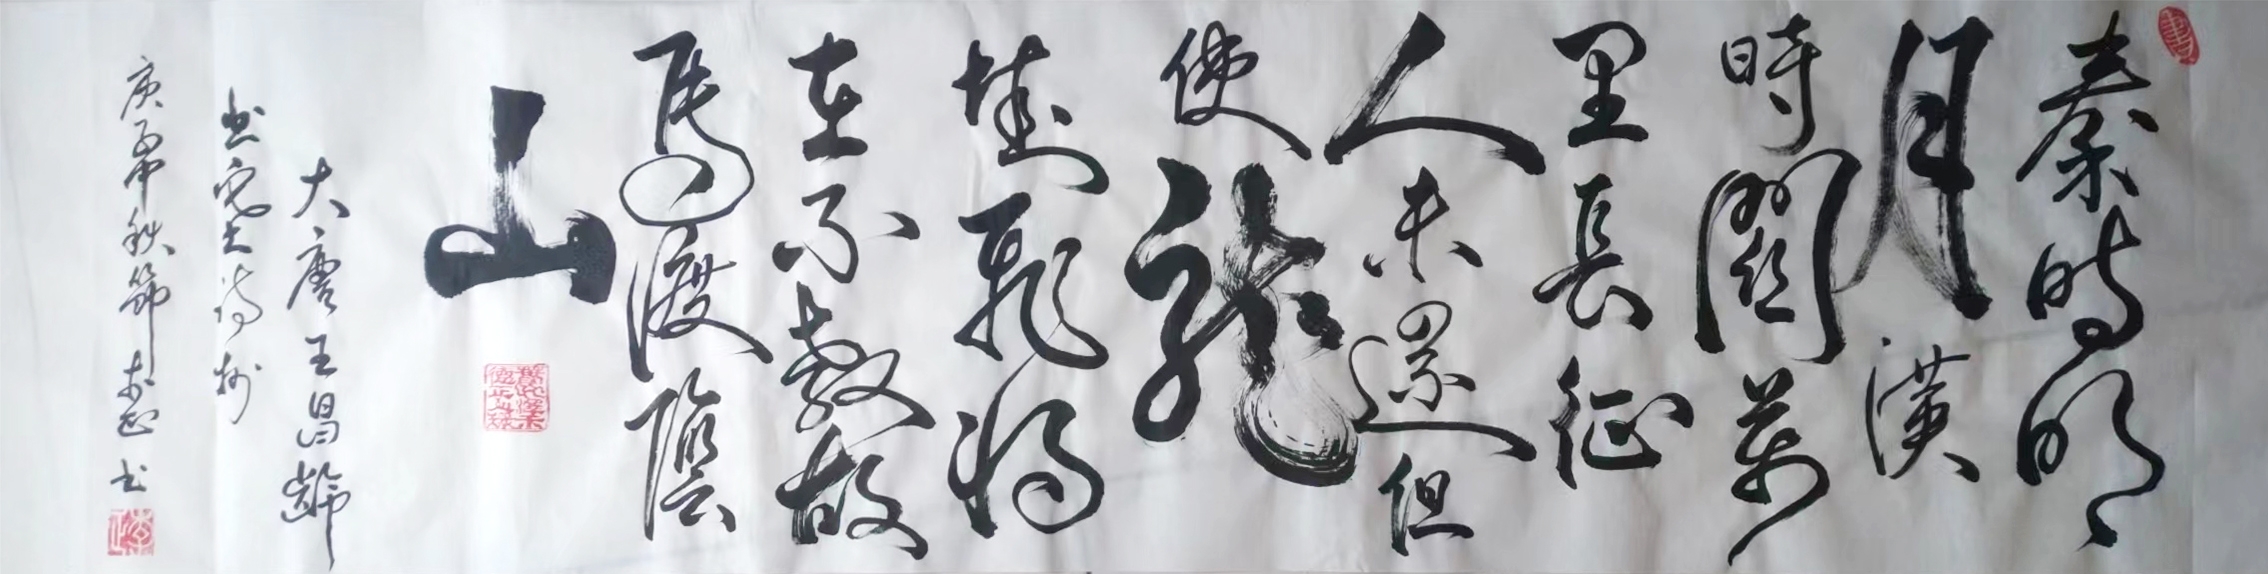 秦時明
月漢
時關萬
里長征
人未還但
使龍
城飛將
在不教故
馬渡陰
山
大唐王昌齡
出塞詩
庚子中秋節正书